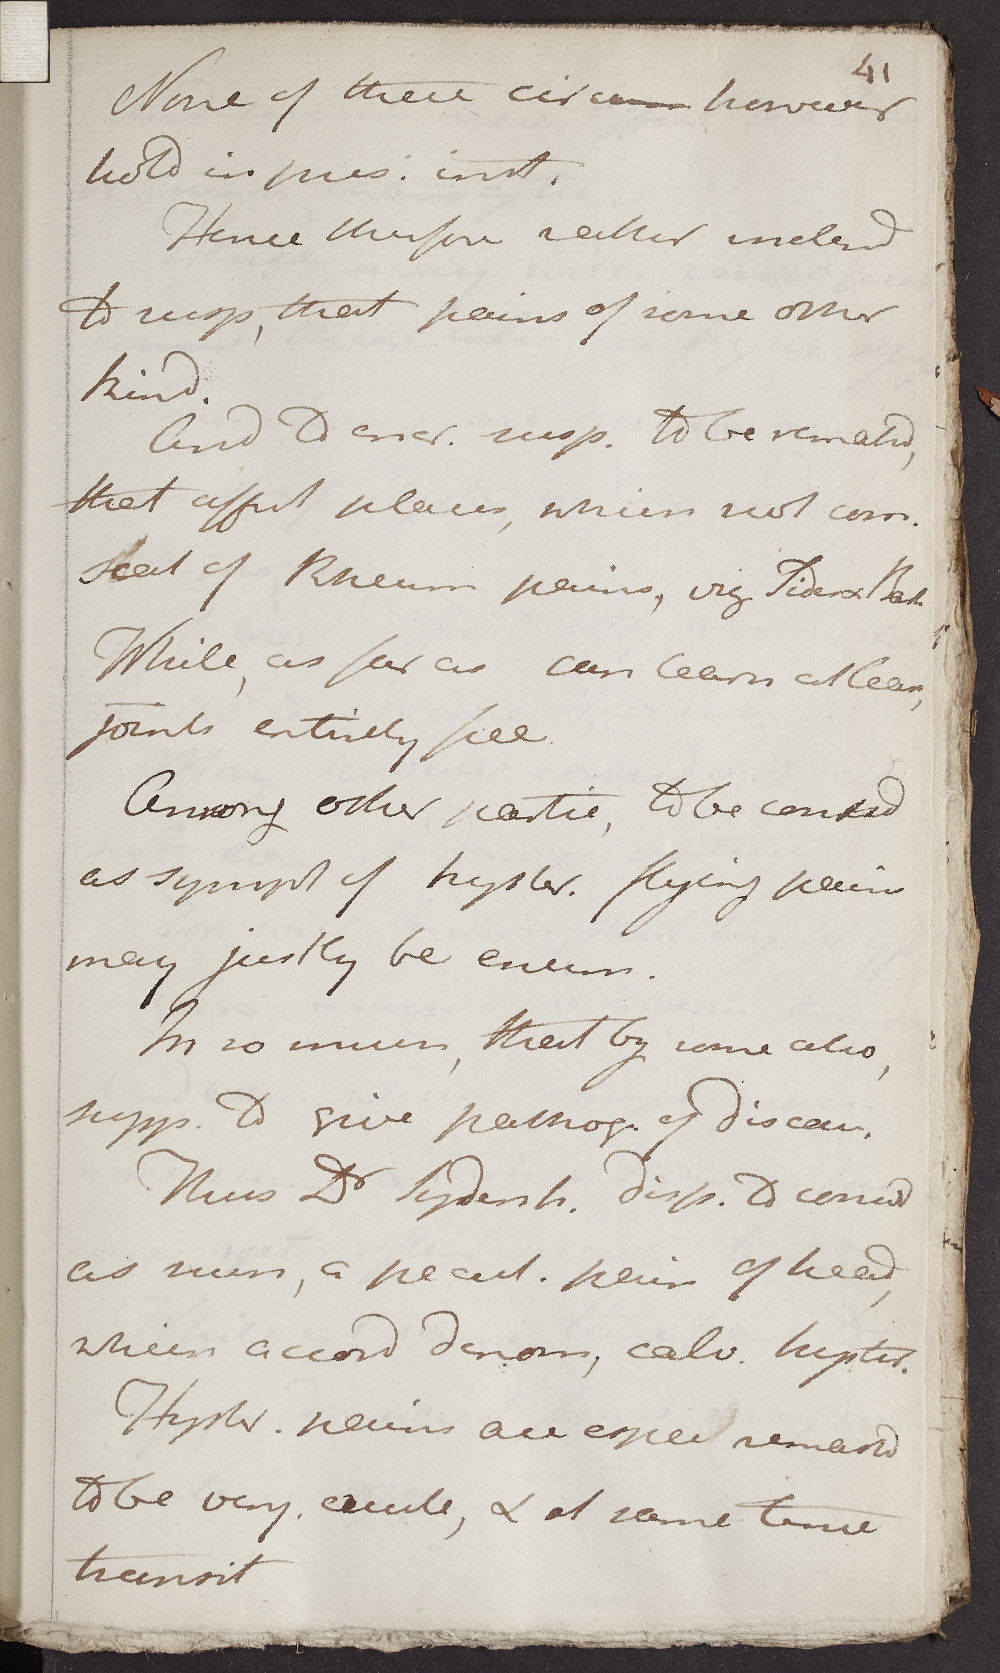 41
None of these circum however
hold in pres. inst.
Hence therefore rather inclend
to susp, that pains of some other
kind.
And to encr. susp. to be remakd,
that affect places, which not com.
seat of Rheum pains, viz Side & Back
While, as far as can learn at least,
joints entirely free
Among other partic, to be consid
as sympt of hyster. flying pains
may justly be enum.
In so much, that by some also,
supp. to give pathog. of disease.
Thus Dr Sydenh. disp. to consid
as such, a pecul. pain of head,
which accord denom, calv. hyster.
Hyster. pains are espec remarkd
to be very acute, & at same time
transit